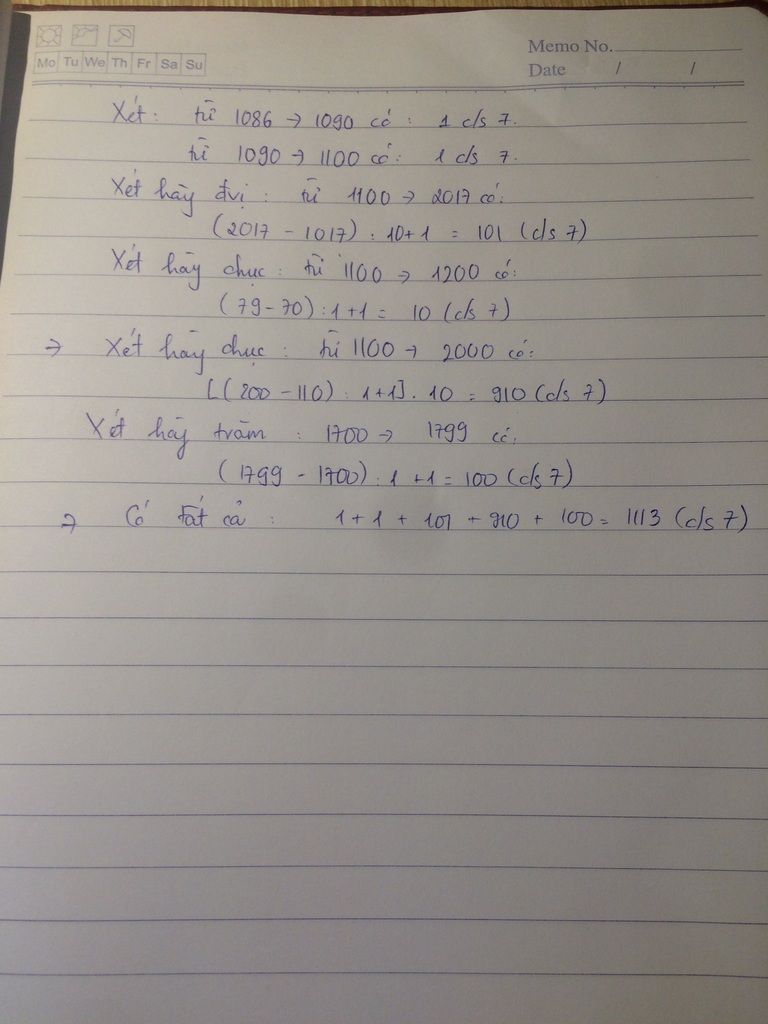 Memo No.
Mo Tu We Th Fr Sa Su
Date / /
Xét: từ 1086 → 1090 có: 1 c/s 7.
từ 1090 → 1100 có: 1 c/s 7.
Xét hàg đvị: từ 1100 → 2017 có:
(2017 - 1017) : 10+1 = 101 (c/s 7)
Xét hàg chục: từ 1100 → 1200 có:
(79-70):1+1= 10 (c/s 7)
→ Xét hàg chục: từ 1100 → 2000 có:
[(200-110) : 1+1]. 10 = 910 (c/s 7)
Xét hàg trăm: 1700 → 1799 có:
(1799 - 1700) : 1 +1 = 100 (c/s 7)
⇒ Có tất cả: 1+1 + 101 + 910 + 100 = 1113 (c/s 7)